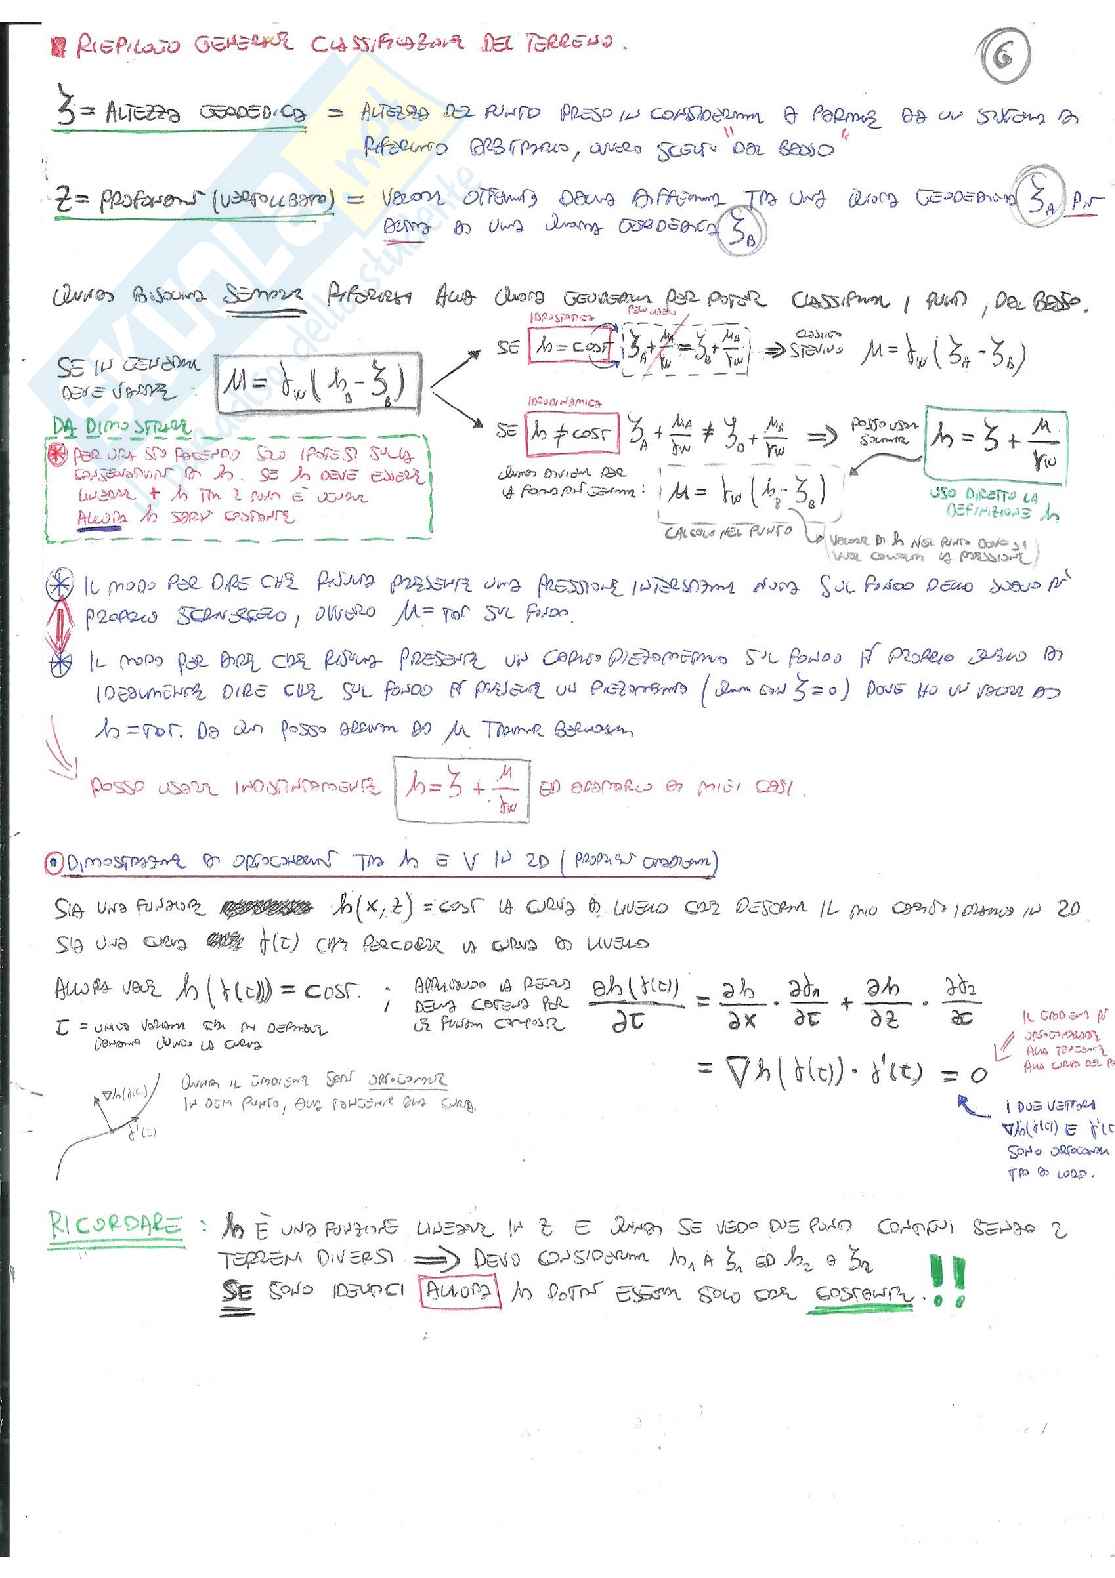 RIEPILOGO GENERALE CLASSIFICAZIONE DEL TERRENO.
6
ζ = ALTEZZA GEODEDICA = ALTEZZA DEL PUNTO PRESO IN CONSIDERAZIONE A PARTIRE DA UN SISTEMA DI
RIFERIMENTO ARBITRARIO, OVVERO SCELTO "DAL BASSO"
Z = PROFONDITÀ (VERSO IL BASSO) = VALORE OTTENUTO DALLA DIFFERENZA TRA UNA QUOTA GEODEDICA ζA PIÙ
ALTA DI UNA QUOTA GEODEDICA ζB
QUINDI BISOGNA SEMPRE RIFERIRSI ALLA QUOTA GEODEDICA PER POTER CLASSIFICARE I PUNTI, DAL BASSO.
SE IN GENERALE
DEVE VALERE
μ = γw (hB - ζB)
IDROSTATICA
SE h = COST
ζA + μA/γw = ζB + μB/γw ⇒
CLASSICO
STEVINO
μ = γw (ζA - ζB)
IDRODINAMICA
SE h ≠ COST
ζA + μA/γw ≠ ζB + μB/γw ⇒
POSSO USARE
SOLAMENTE
h = ζ + μ/γw
USO DIRETTO LA
DEFINIZIONE h
QUINDI DIVIENE PER
LA FORMA PIÙ GENERALE:
μ = γw (hB - ζB)
CALCOLO NEL PUNTO
(VALORE DI h NEL PUNTO DOVE SI
VUOLE CONOSCERE LA PRESSIONE)
DA DIMOSTRARE
PER ORA STO FACENDO SOLO IPOTESI SULLA
CONSERVAZIONE DI h. SE h DEVE ESSERE
LINEARE + h TRA 2 PUNTI È UGUALE
ALLORA h SARÀ COSTANTE
IL MODO PER DIRE CHE RISULTA PRESENTE UNA PRESSIONE INTERSTIZIALE NOTA SUL FONDO DELLO SCAVO È
PROPRIO SCRIVERLO, OVVERO μ = TOT SUL FONDO.
IL MODO PER DIRE CHE RISULTA PRESENTE UN CARICO PIEZOMETRICO SUL FONDO È PROPRIO QUELLO DI
IDEALMENTE DIRE CHE SUL FONDO È PRESENTE UN PIEZOMETRO (QUINDI CON ζ = 0) DOVE HO UN VALORE DI
h = TOT. DA QUI POSSO ARRIVARE AD μ TRAMITE BERNOULLI
POSSO USARE INDISTINTAMENTE h = ζ + μ/γw ED ADATTARLO AI MIEI CASI.
DIMOSTRAZIONE DI ORTOGONALITÀ TRA h E V IN 2D (PROPRIETÀ GRADIENTE)
SIA UNA FUNZIONE h(x,z) = COST LA CURVA DI LIVELLO CHE DESCRIVE IL MIO CARICO IDRAULICO IN 2D
SIA UNA CURVA γ(τ) CHE PERCORRE LA CURVA DI LIVELLO
ALLORA VALE h(γ(τ)) = COST. ;
APPLICANDO LA REGOLA
DELLA CATENA PER
LE FUNZIONI COMPOSTE
∂h(γ(τ))/∂τ = ∂h/∂x · ∂γ1/∂τ + ∂h/∂z · ∂γ2/∂τ
τ = UNICA VARIABILE
LUNGO LA CURVA
= ∇h(γ(τ)) · γ'(τ) = 0
IL GRADIENTE È
ORTOGONALE
ALLA TANGENTE
ALLA CURVA DEL
I DUE VETTORI
∇h(γ(τ)) E γ'(τ
SONO ORTOGONALI
TRA DI LORO.
∇h(γ(τ))
γ'(τ)
QUINDI IL GRADIENTE SARÀ ORTOGONALE
IN OGNI PUNTO, ALLA TANGENTE ALLA CURVA.
RICORDARE : h È UNA FUNZIONE LINEARE IN Z E QUINDI SE VEDO DUE PUNTI CONTIGUI SENZA 2
TERRENI DIVERSI ⇒ DEVO CONSIDERARE h1 A ζ1 ED h2 A ζ2
SE SONO IDENTICI ALLORA h POTRÀ ESSERE SOLO CHE COSTANTE. !!